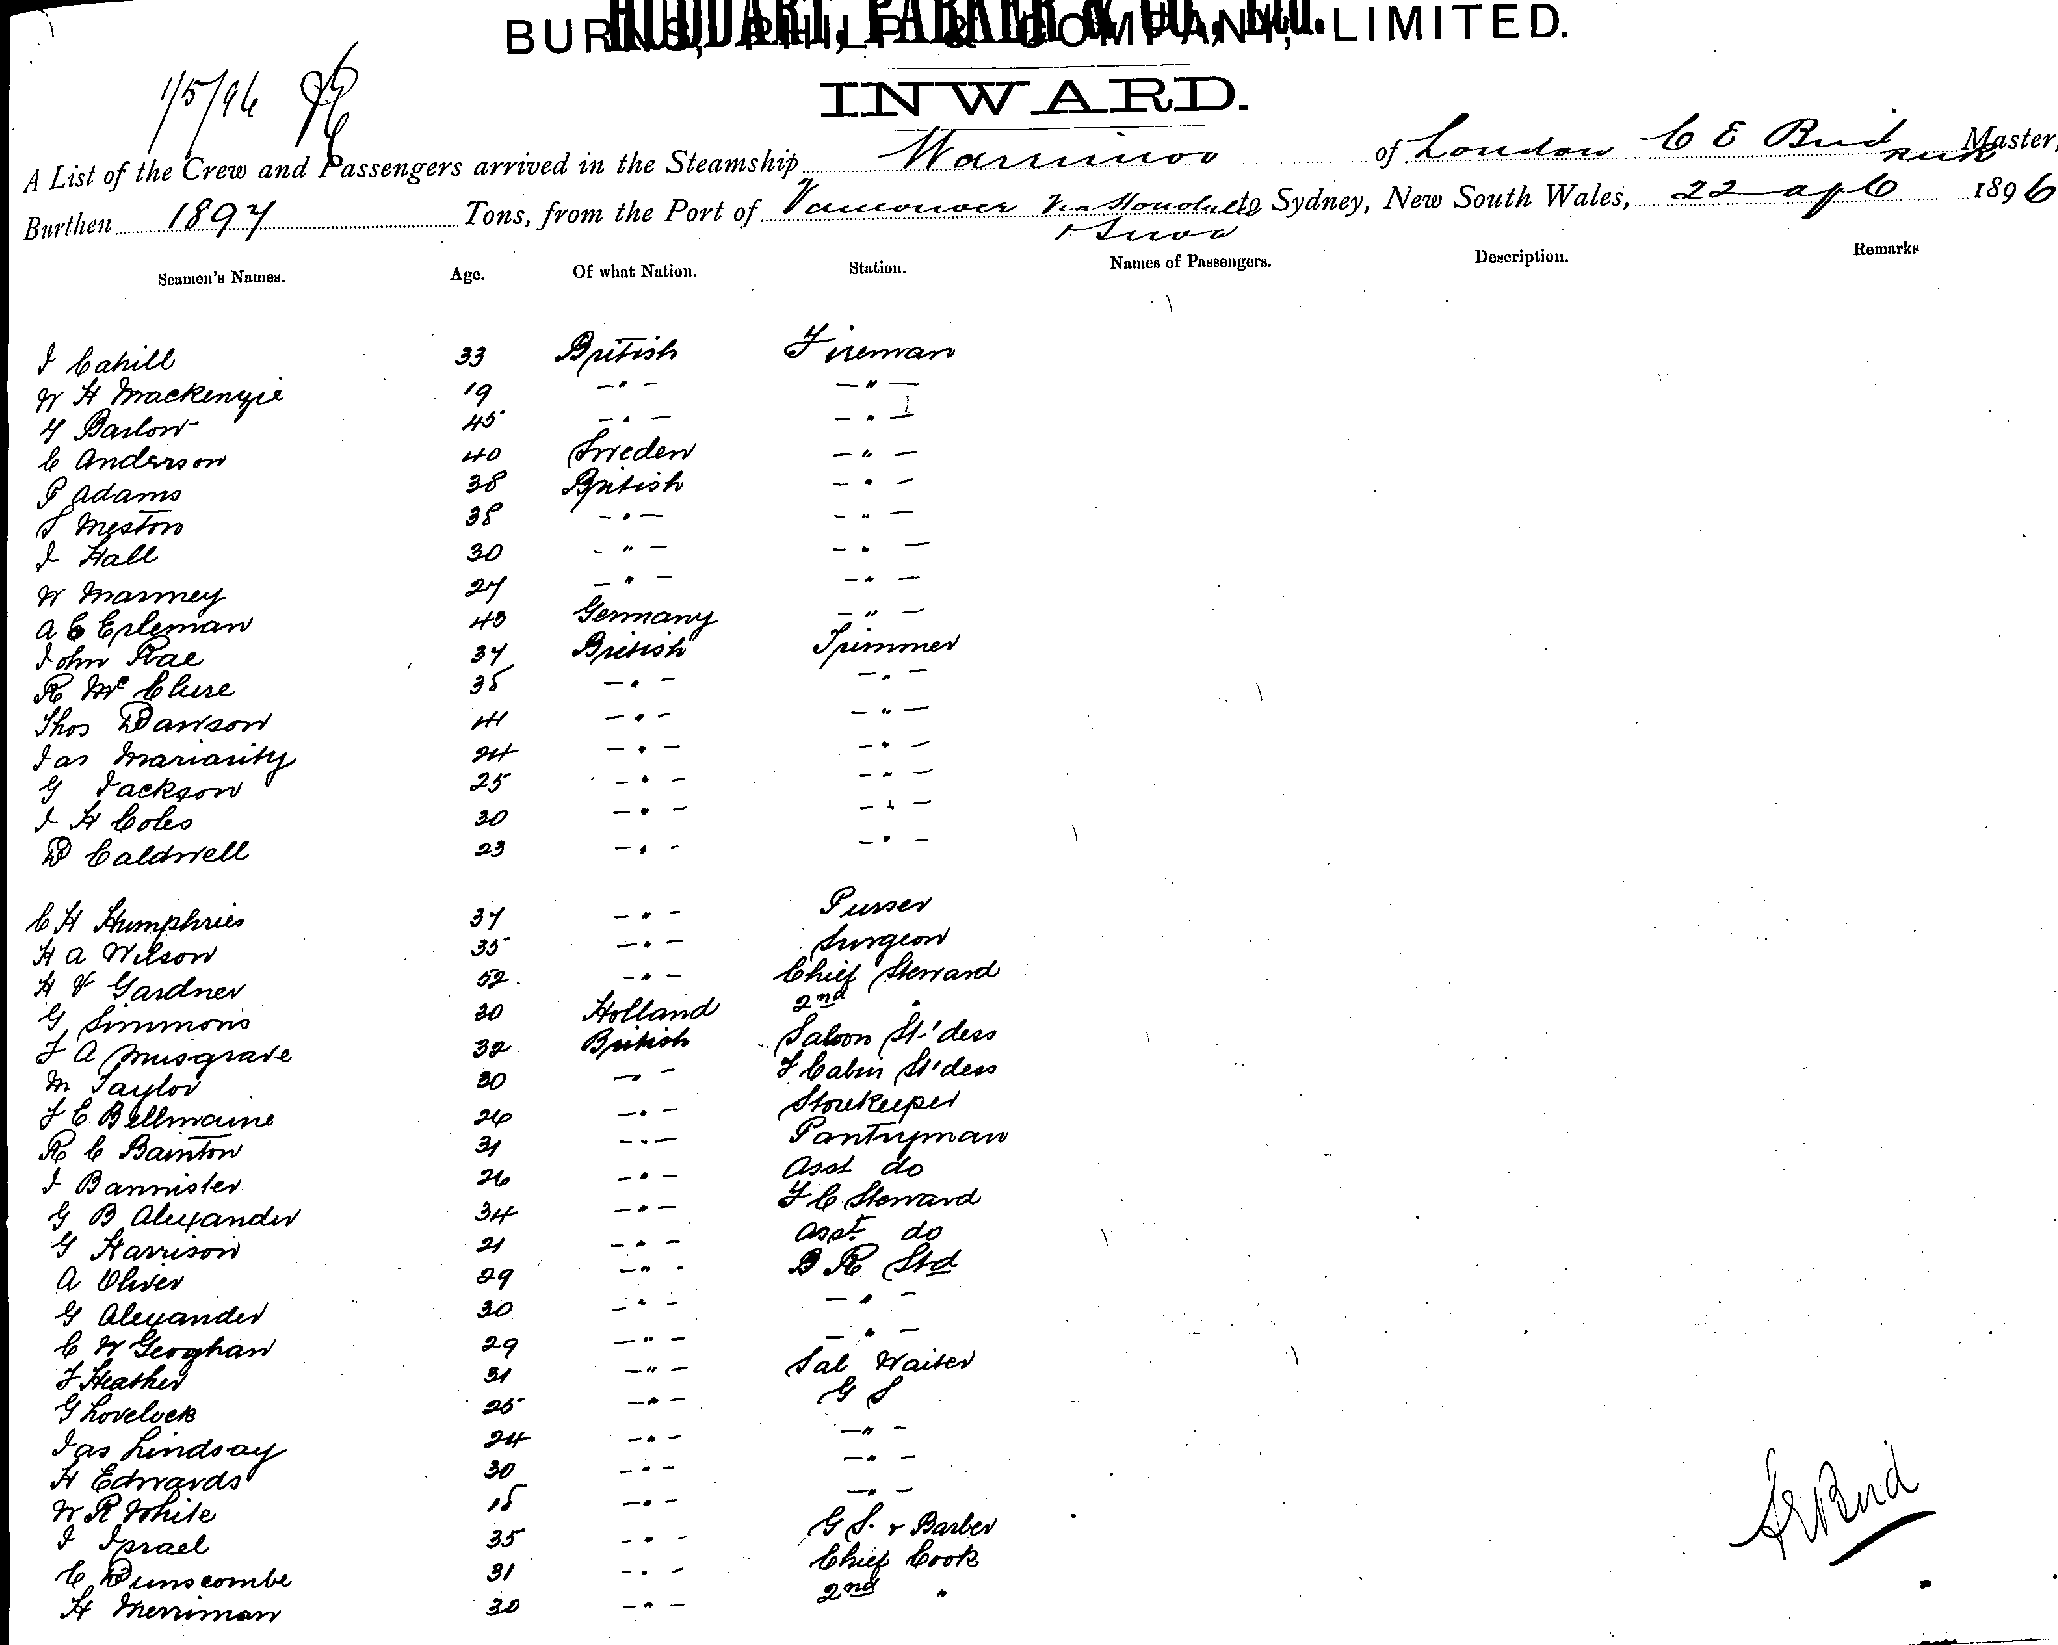 BURNS, PHILP & COMPANY, LIMITED.
HUDDART, PARKER & Co. Ltd.
INWARD.
1/5/96
A List of the Crew and Passengers arrived in the Steamship Warrimoo of London C E Bird Master,
Burthen 1897 Tons, from the Port of Vancouver via Honolulu to Sydney, New South Wales, 22 apl 1896
& Suva
Seamen's Names. Age. Of what Nation. Station. Names of Passengers. Description. Remarks
J Cahill 33 British Fireman
W H Mackenzie 19 -"- -"-
Y Barlow 45 -"- -"-
C Anderson 40 Sweden -"-
P Adams 38 British -"-
S Meston 38 -"- -"-
J Hall 30 -"- -"-
W Marmey 27 -"- -"-
A E Erleman 43 Germany -"-
John Rae 37 British Trimmer
R Mc Clure 35 -"- -"-
Thos Dawson 41 -"- -"-
Jas Mariarity 24 -"- -"-
G Jackson 25 -"- -"-
J H Coles 30 -"- -"-
D Caldwell 23 -"- -"-
C H Humphries 37 -"- Purser
H A Wilson 35 -"- Surgeon
H V Gardner 52 -"- Chief Steward
G Simmons 30 Holland 2nd "
F A Musgrave 32 British Saloon St'dess
M Taylor 30 -"- F Cabin St'dess
F E Bellmaine 26 -"- Storekeeper
R C Bainton 31 -"- Pantryman
J Bannister 26 -"- Asst do
G B Alexander 34 -"- F C Steward
G Harrison 21 -"- Asst do
A Oliver 29 -"- B R Std
G Alexander 30 -"- -"-
C W Geoghan 29 -"- -"-
F Heather 31 -"- Sal Waiter
G Lovelock 25 -"- G S
Jas Lindsay 24 -"- -"-
H Edwards 30 -"- -"-
W R White 18 -"- -"-
J Israel 35 -"- G S. & Barber
C Dunscombe 31 -"- Chief Cook
H Merriman 30 -"- 2nd "
C E Bird